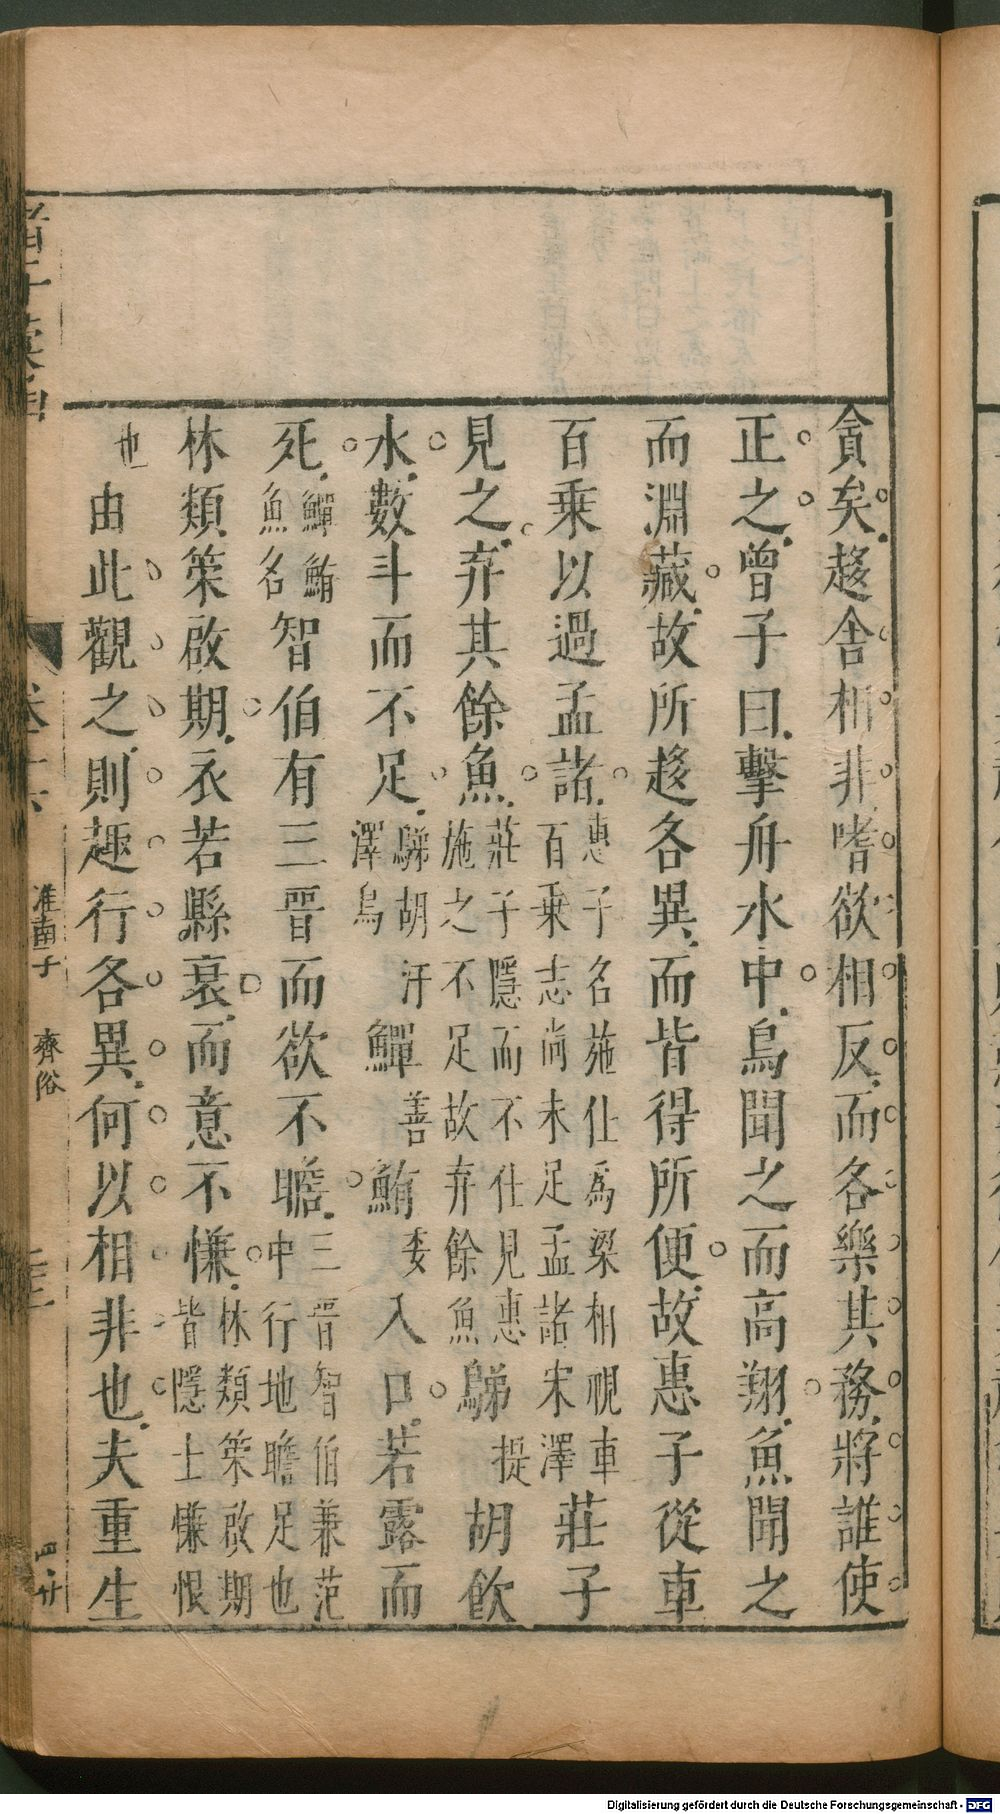 貪矣趍舍相非嗜欲相反而各樂其務將誰使
正之曾子曰擊舟水中鳥聞之而高翔魚聞之
而淵藏故所趍各異而皆得所便故惠子從車
百乗以過孟諸惠子名施仕爲梁相覗車百乗志尚未足孟諸宋澤莊子
見之弃其餘魚莊子隱而不仕見惠施之不足故弃餘魚鵜提胡飲
水數斗而不足鵜胡汙澤鳥鱓善鮪委入口若露而
死鱓鮪魚名智伯有三晋而欲不贍三晋智伯兼范中行地贍足也
林類䇿啟期衣若縣衰而意不慊林類䇿啟期皆隱士慊恨
也由此觀之則趣行各異何以相非也夫重生
淮南子 齊俗
Digitalisierung gefördert durch die Deutsche Forschungsgemeinschaft - DFG